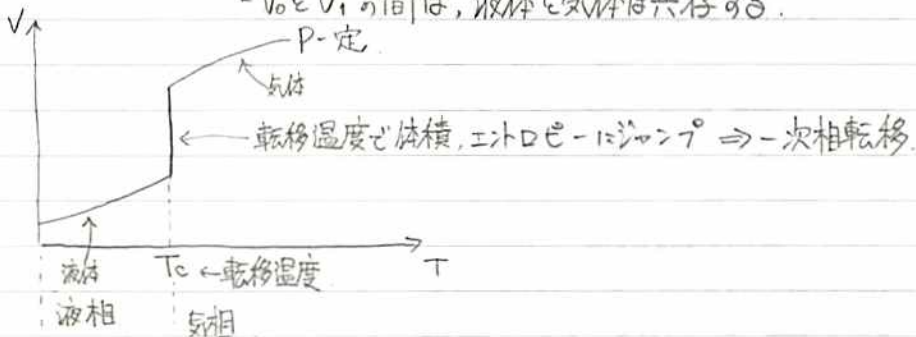 V₀とV₁の間は,液体と気体は共存する.
V
P一定
気体
転移温度で体積,エントロピーにジャンプ ⇒ 一次相転移.
Tc ←転移温度
T
液体
液相
気相